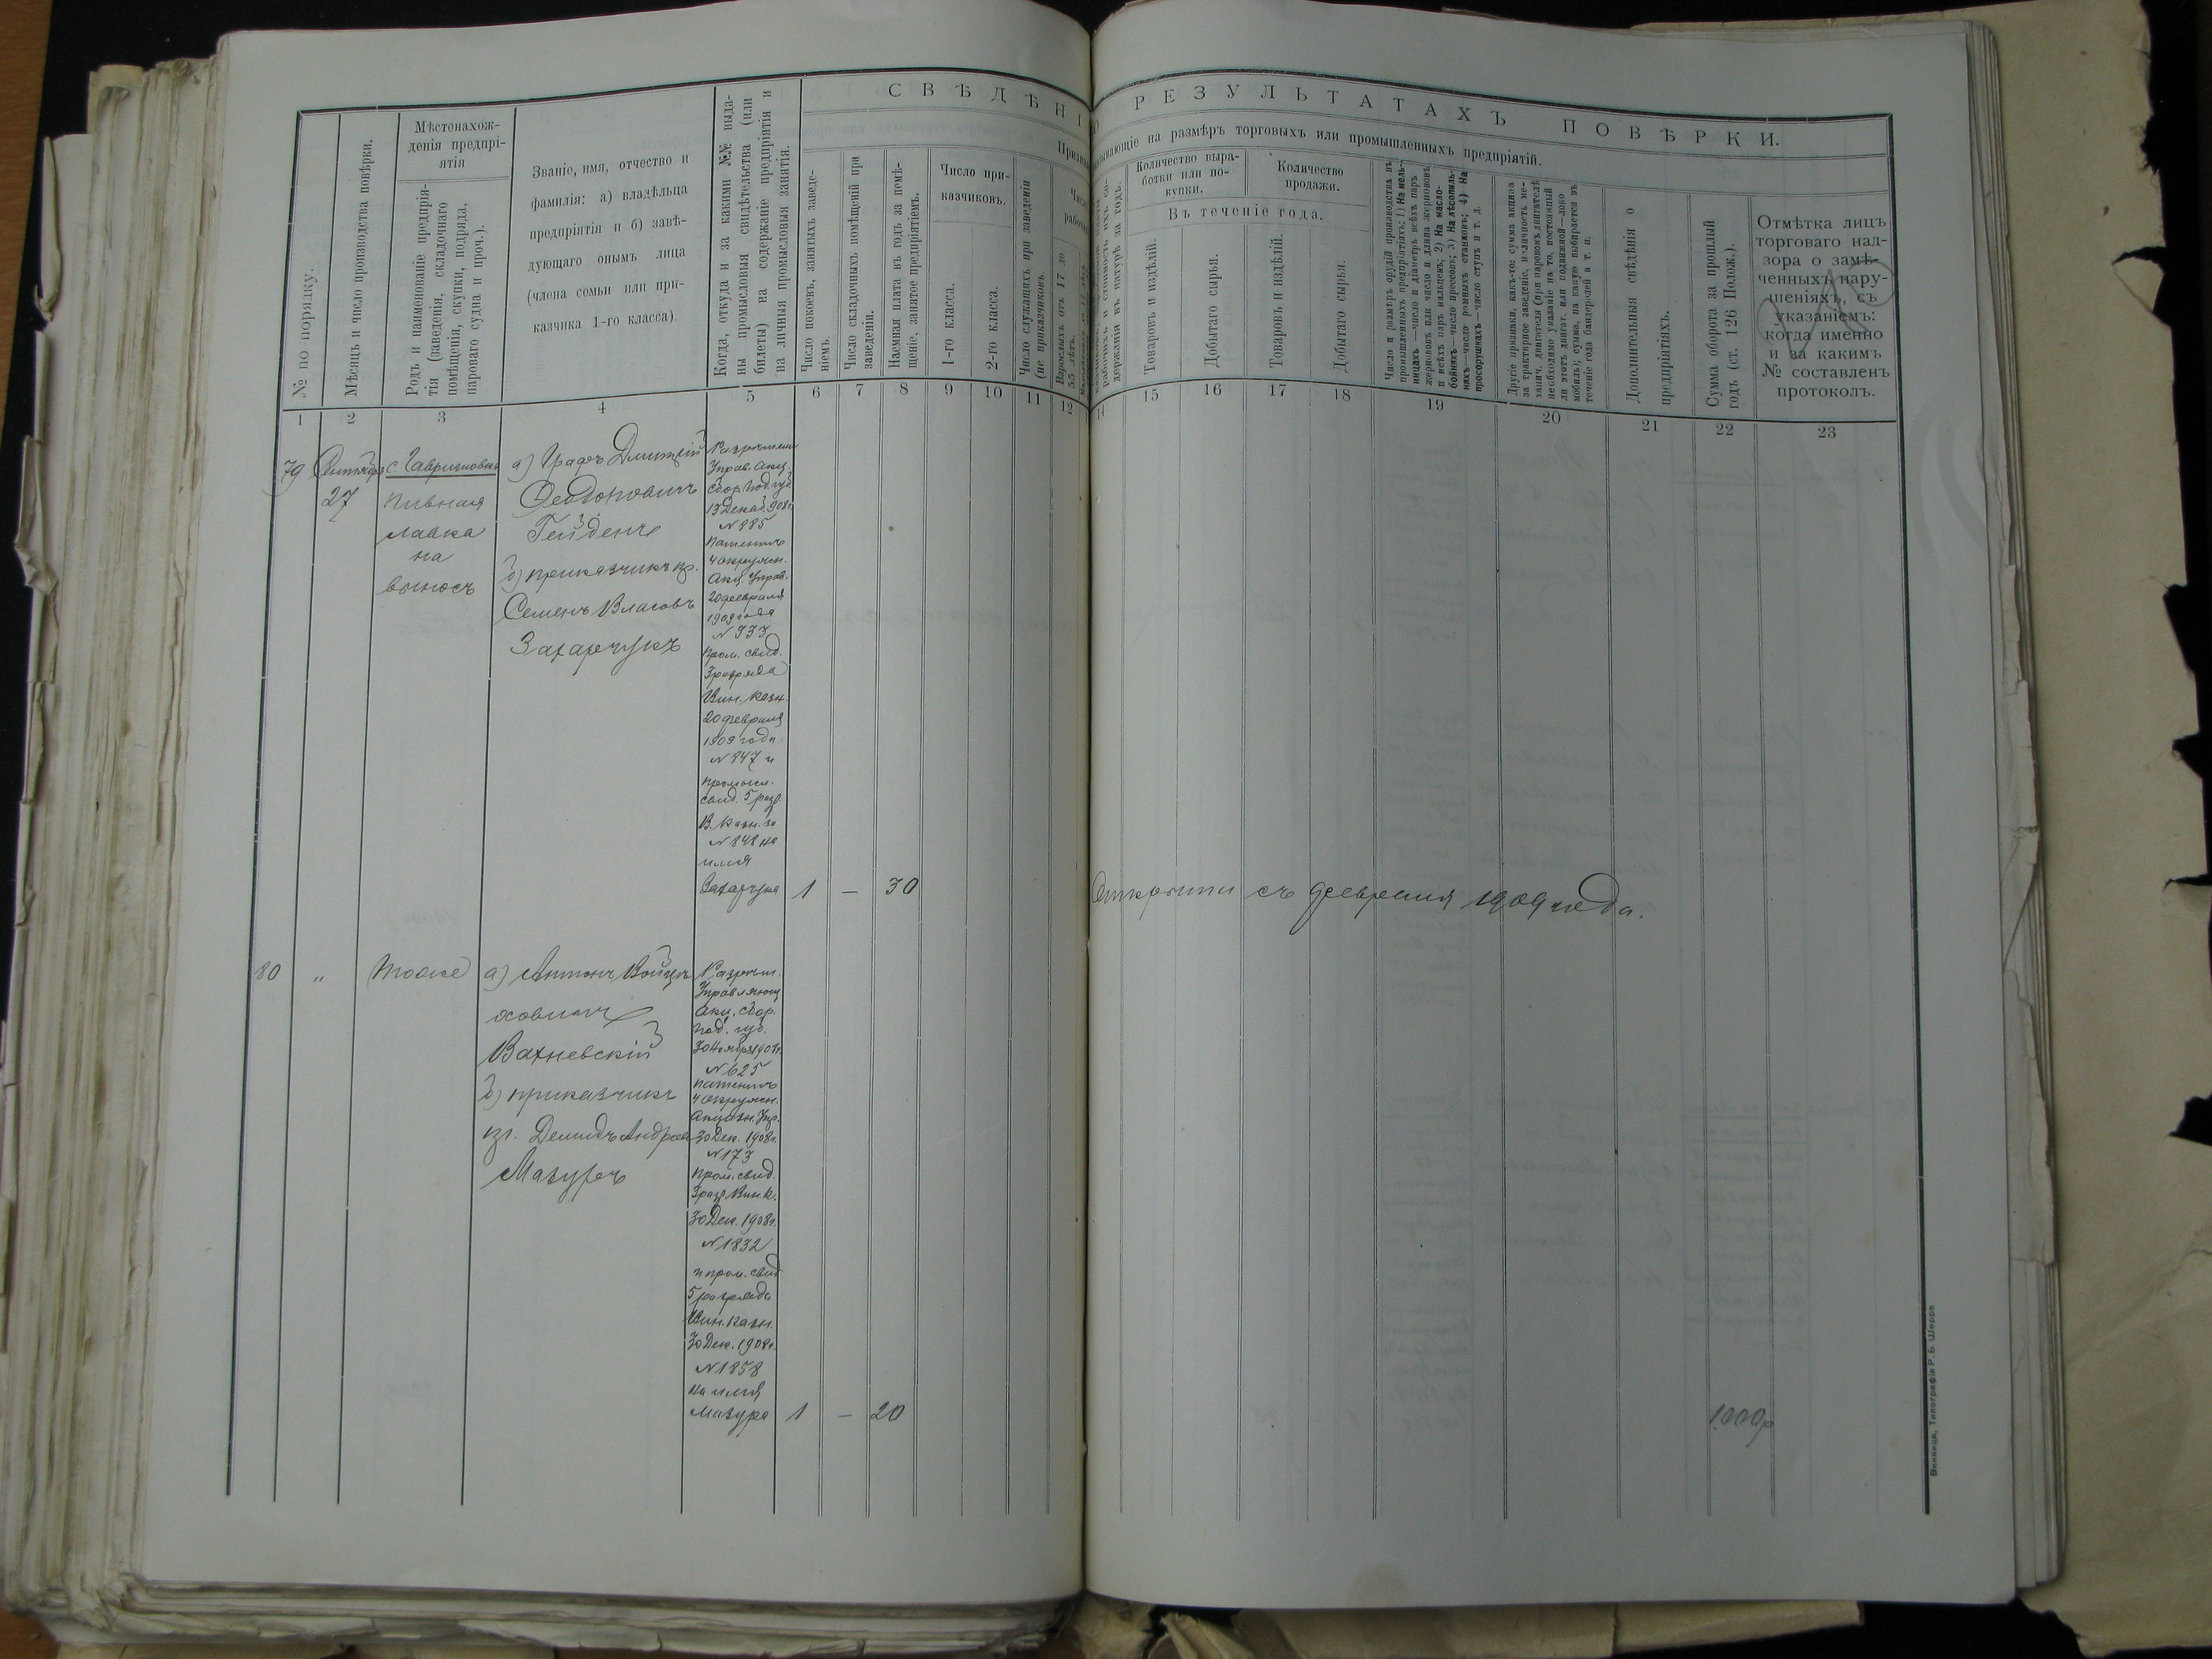 СВѢДѢНІ
О РЕЗУЛЬТАТАХЪ ПОВѢРКИ.
Признаки
указывающіе на размѣръ торговыхъ или промышленныхъ предпріятій.
№ по порядку.
Мѣсяцъ и число производства повѣрки.
Мѣстонахож-
денія предпрі-
ятія
Родъ и наименованіе предпрія-
тія (заведенія, складочнаго
помѣщенія, скупки, подряда,
пароваго судна и проч.).
Званіе, имя, отчество и
фамилія: а) владѣльца
предпріятія и б) завѣ-
дующаго онымъ лица
(члена семьи или при-
казчика 1-го класса).
Когда, откуда и за какими №№ выда-
ны промысловыя свидѣтельства (или
билеты) на содержаніе предпріятія и
на личныя промысловыя занятія.
Число покоевъ, занятыхъ заведе-
ніемъ.
Число складочныхъ помѣщеній при
заведеніи.
Наемная плата въ годъ за помѣ-
щеніе, занятое предпріятіемъ.
Число при-
казчиковъ.
1-го класса.
2-го класса.
Число служащихъ при заведеніи
(не приказчиковъ).
Число
рабочихъ
Взрослыхъ отъ 17 до
55 лѣтъ.
Количество выра-
ботки или по-
купки.
Количество
продажи.
Въ теченіе года.
Товаровъ и издѣлій.
Добытаго сырья.
Товаровъ и издѣлій.
Добытаго сырья.
Число и размѣръ орудій производства въ
промышленныхъ предпріятіяхъ: 1) На мель-
ницахъ—число и діаметръ всѣхъ паръ
жернововъ или число и длина жернововъ
и всѣхъ паръ вальцевъ; 2) На масло-
бойняхъ—число прессовъ; 3) На лѣсопиль-
няхъ—число рамныхъ станковъ; 4) На
просорушкахъ—число ступъ и т. д.
Другіе признаки, какъ-то: сумма акциза
за трактирное заведеніе, наличность ме-
ханич. двигателя (при паровомъ двигателѣ
необходимо указаніе на то, постоянный
ли этотъ двигат. или подвижной—локо
мобиль); сумма, на какую выбирается въ
теченіе года бандеролей и т. п.
Дополнительныя свѣдѣнія о
предпріятіяхъ.
Сумма оборота за прошлый
годъ (ст. 126 Полож.).
Отмѣтка лицъ
торговаго над-
зора о замѣ-
ченныхъ нару-
шеніяхъ, съ
указаніемъ:
когда именно
и за какимъ
№ составленъ
протоколъ.
1 2 3 4 5 6 7 8 9 10 11 12 14 15 16 17 18 19 20 21 22 23
79
27
Пивная
лавка
на
выносъ
а) Графъ Дмитрій
Ѳеодоровичъ
Гейденъ
б) приказчикъ кр.
Семенъ Власовъ
Захарчукъ
Управ. Акц.
сбор. Под. губ.
13 Декаб. 908 г.
Патентъ
4 окружн.
Акц. Управ.
20 февраля
1909 года
№ 333
Пром. свид.
3 разряда
Вин. казн.
20 февраля
1909 года
№ 847 и
промысл.
свид. 5 разр.
В. казн. за
№ 848 на
имя
Захарчука
1 — 30
Открыта съ февраля 1909 года.
80
"
тоже
а) Антонъ Войце-
ховичъ
Вахневскій
б) приказчикъ
кр. Демидъ Андреев
Мазуръ
Разрѣш.
Управляющ
Акц. сбор.
Под. губ.
30 Ноября 1908 г.
№ 625
патентъ
4 окружн.
Акцизн. Упр.
30 Дек. 1908 г.
№ 173
Пром. свид.
3 разр. Вин. к.
30 Дек. 1908 г.
№ 1832
и пром. свид
5 разряда
Вин. казн.
30 Дек. 1908 г.
№ 1858
на имя
Мазура
1 — 20
1000 р
Винница, Типографія Р. Б. Шерра